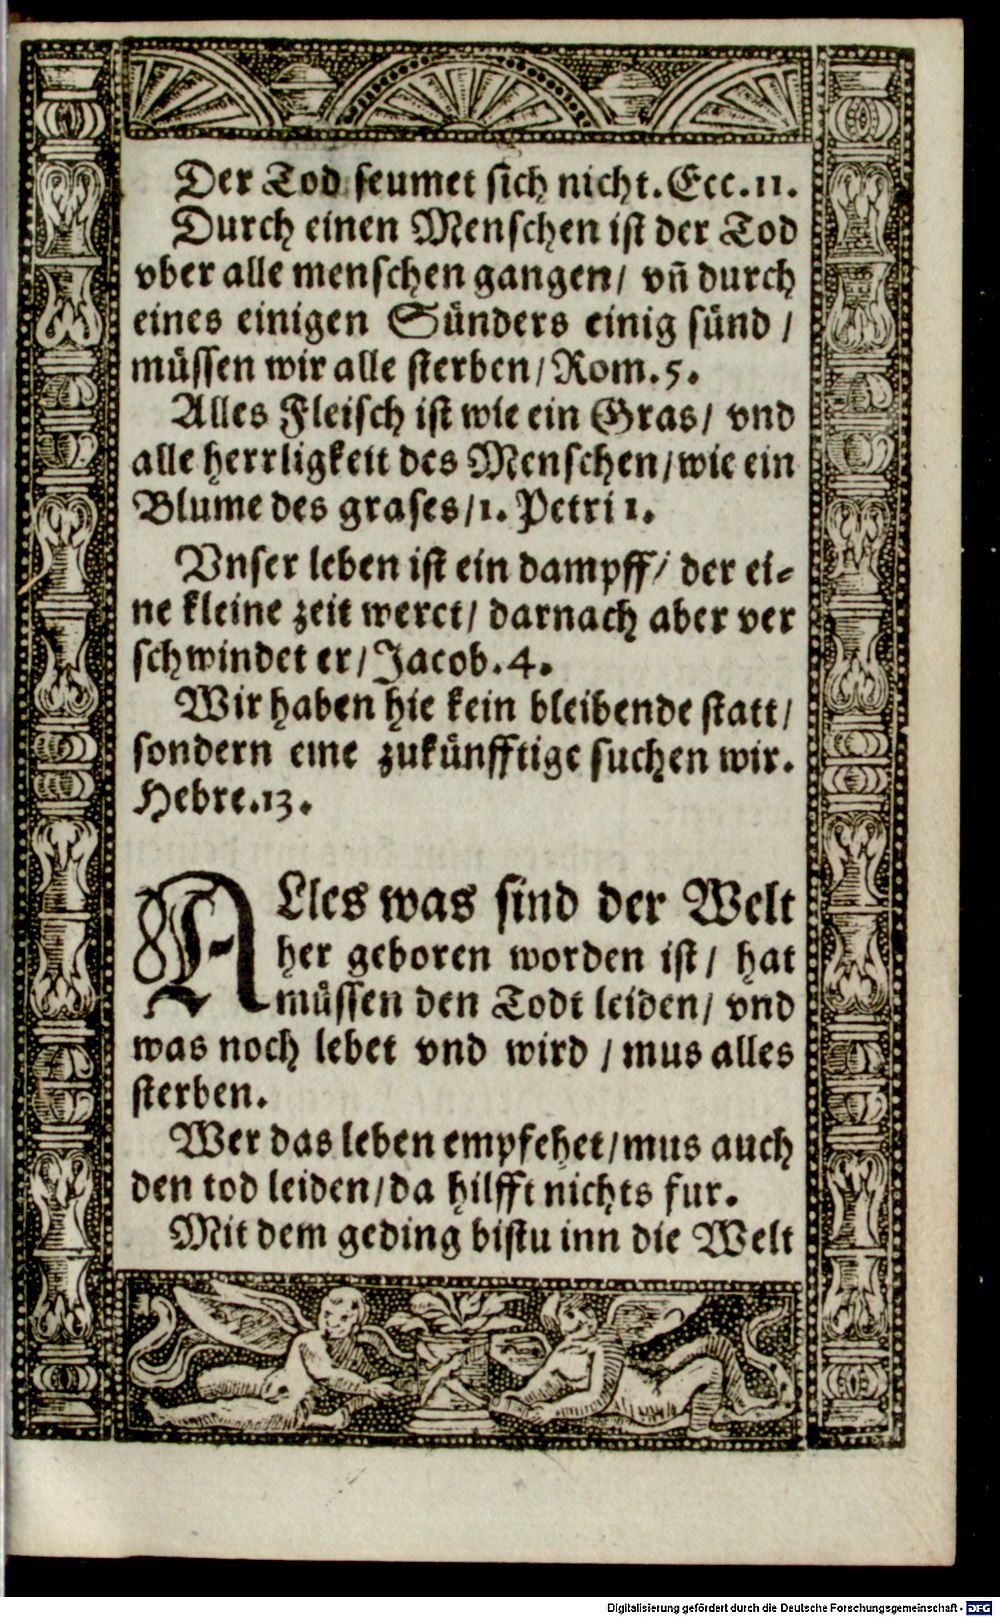 Der Tod seumet sich nicht. Ecc. 11.
Durch einen Menschen ist der Tod
vber alle menschen gangen/ vñ durch
eines einigen Sünders einig sünd /
müssen wir alle sterben/ Rom. 5.
Alles Fleisch ist wie ein Gras/ vnd
alle herrligkeit des Menschen/ wie ein
Blume des grases/ 1. Petri 1.
Vnser leben ist ein dampff/ der ei=
ne kleine zeit weret/ darnach aber ver
schwindet er/ Jacob. 4.
Wir haben hie kein bleibende statt/
sondern eine zukünfftige suchen wir.
Hebre. 13.
ALles was sind der Welt
her geboren worden ist/ hat
müssen den Todt leiden/ vnd
was noch lebet vnd wird / mus alles
sterben.
Wer das leben empfehet/ mus auch
den tod leiden/ da hilfft nichts fur.
Mit dem geding bistu inn die Welt
Digitalisierung gefördert durch die Deutsche Forschungsgemeinschaft - DFG